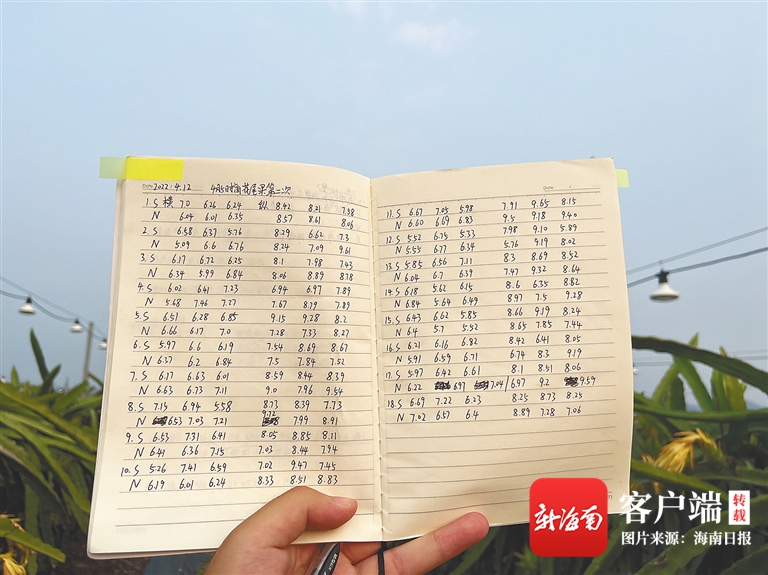 Date 2022.4.12 4h时间花尾果第二次
1.S 横 7.0 6.26 6.24 纵 8.42 8.21 7.58
N 6.04 6.01 6.35 8.57 8.61 8.06
2.S 6.58 6.37 5.76 8.29 6.62 7.3
N 5.09 6.6 6.76 8.24 7.09 9.61
3.S 6.17 6.72 6.25 8.1 7.98 7.43
N 6.34 5.99 6.84 8.06 8.89 8.78
4.S 6.02 6.41 7.23 6.94 6.97 7.89
N 5.68 7.46 7.27 7.67 8.79 7.89
5.S 6.51 6.28 6.85 9.15 9.28 8.2
N 6.66 6.17 7.0 7.28 7.33 8.27
6.S 5.97 6.6 6.19 7.54 8.69 8.67
N 6.37 6.2 6.84 7.5 7.84 7.52
7.S 6.17 6.63 6.01 8.59 8.44 8.39
N 6.63 6.73 7.11 9.0 7.96 9.54
8.S 7.15 6.94 5.58 8.73 8.39 7.73
N 6.53 7.03 7.21 9.72 7.99 8.91
9.S 6.53 7.31 6.41 8.05 8.85 8.11
N 6.41 6.36 7.15 7.03 8.44 7.94
10.S 5.26 7.41 6.59 7.02 9.47 7.45
N 6.19 6.01 6.24 8.33 8.51 8.83
Date
11.S 6.67 7.05 5.98 7.91 9.65 8.15
N 6.60 6.69 6.83 9.5 9.18 9.40
12.S 5.52 6.75 5.33 7.98 9.10 5.89
N 5.55 6.77 6.34 5.76 9.19 8.02
13.S 5.85 6.56 7.11 8.3 8.69 8.52
N 6.04 6.7 6.39 7.47 9.32 8.64
14.S 6.18 5.62 6.15 8.6 6.35 8.82
N 6.84 5.64 6.49 8.97 7.5 9.28
15.S 6.43 6.62 5.85 8.66 9.19 8.24
N 6.4 5.7 5.52 8.65 7.85 7.44
16.S 6.21 6.16 6.82 8.42 6.41 8.05
N 5.91 6.59 6.71 6.74 8.3 9.19
17.S 5.97 6.42 6.61 8.1 8.51 8.06
N 6.22 6.91 7.04 6.97 9.2 9.59
18.S 6.69 7.22 6.23 8.25 8.73 8.25
N 7.02 6.57 6.4 8.89 7.28 7.06
新海南
客户端 转载
图片来源：海南日报